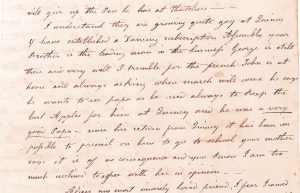 will give up the Law he has at thatcher
I understand they are growing quite gay at Quincy
& have established a Dancing subscription Assembly your
Brother is the leading man in the business George is still
there and very well I tremble for the french John is at
home and always asking when march will come he says
he wants to see papa as he was always to keep the
best Apples for him at Quincy and he was a very
good Papa — since her return from Quincy it has been im
possible to prevail on him to go to school your mother
says it is of no consequence and you know I am too
much inclined to agree with her in opinion
Adieu my most sincerely loved friend I fear I